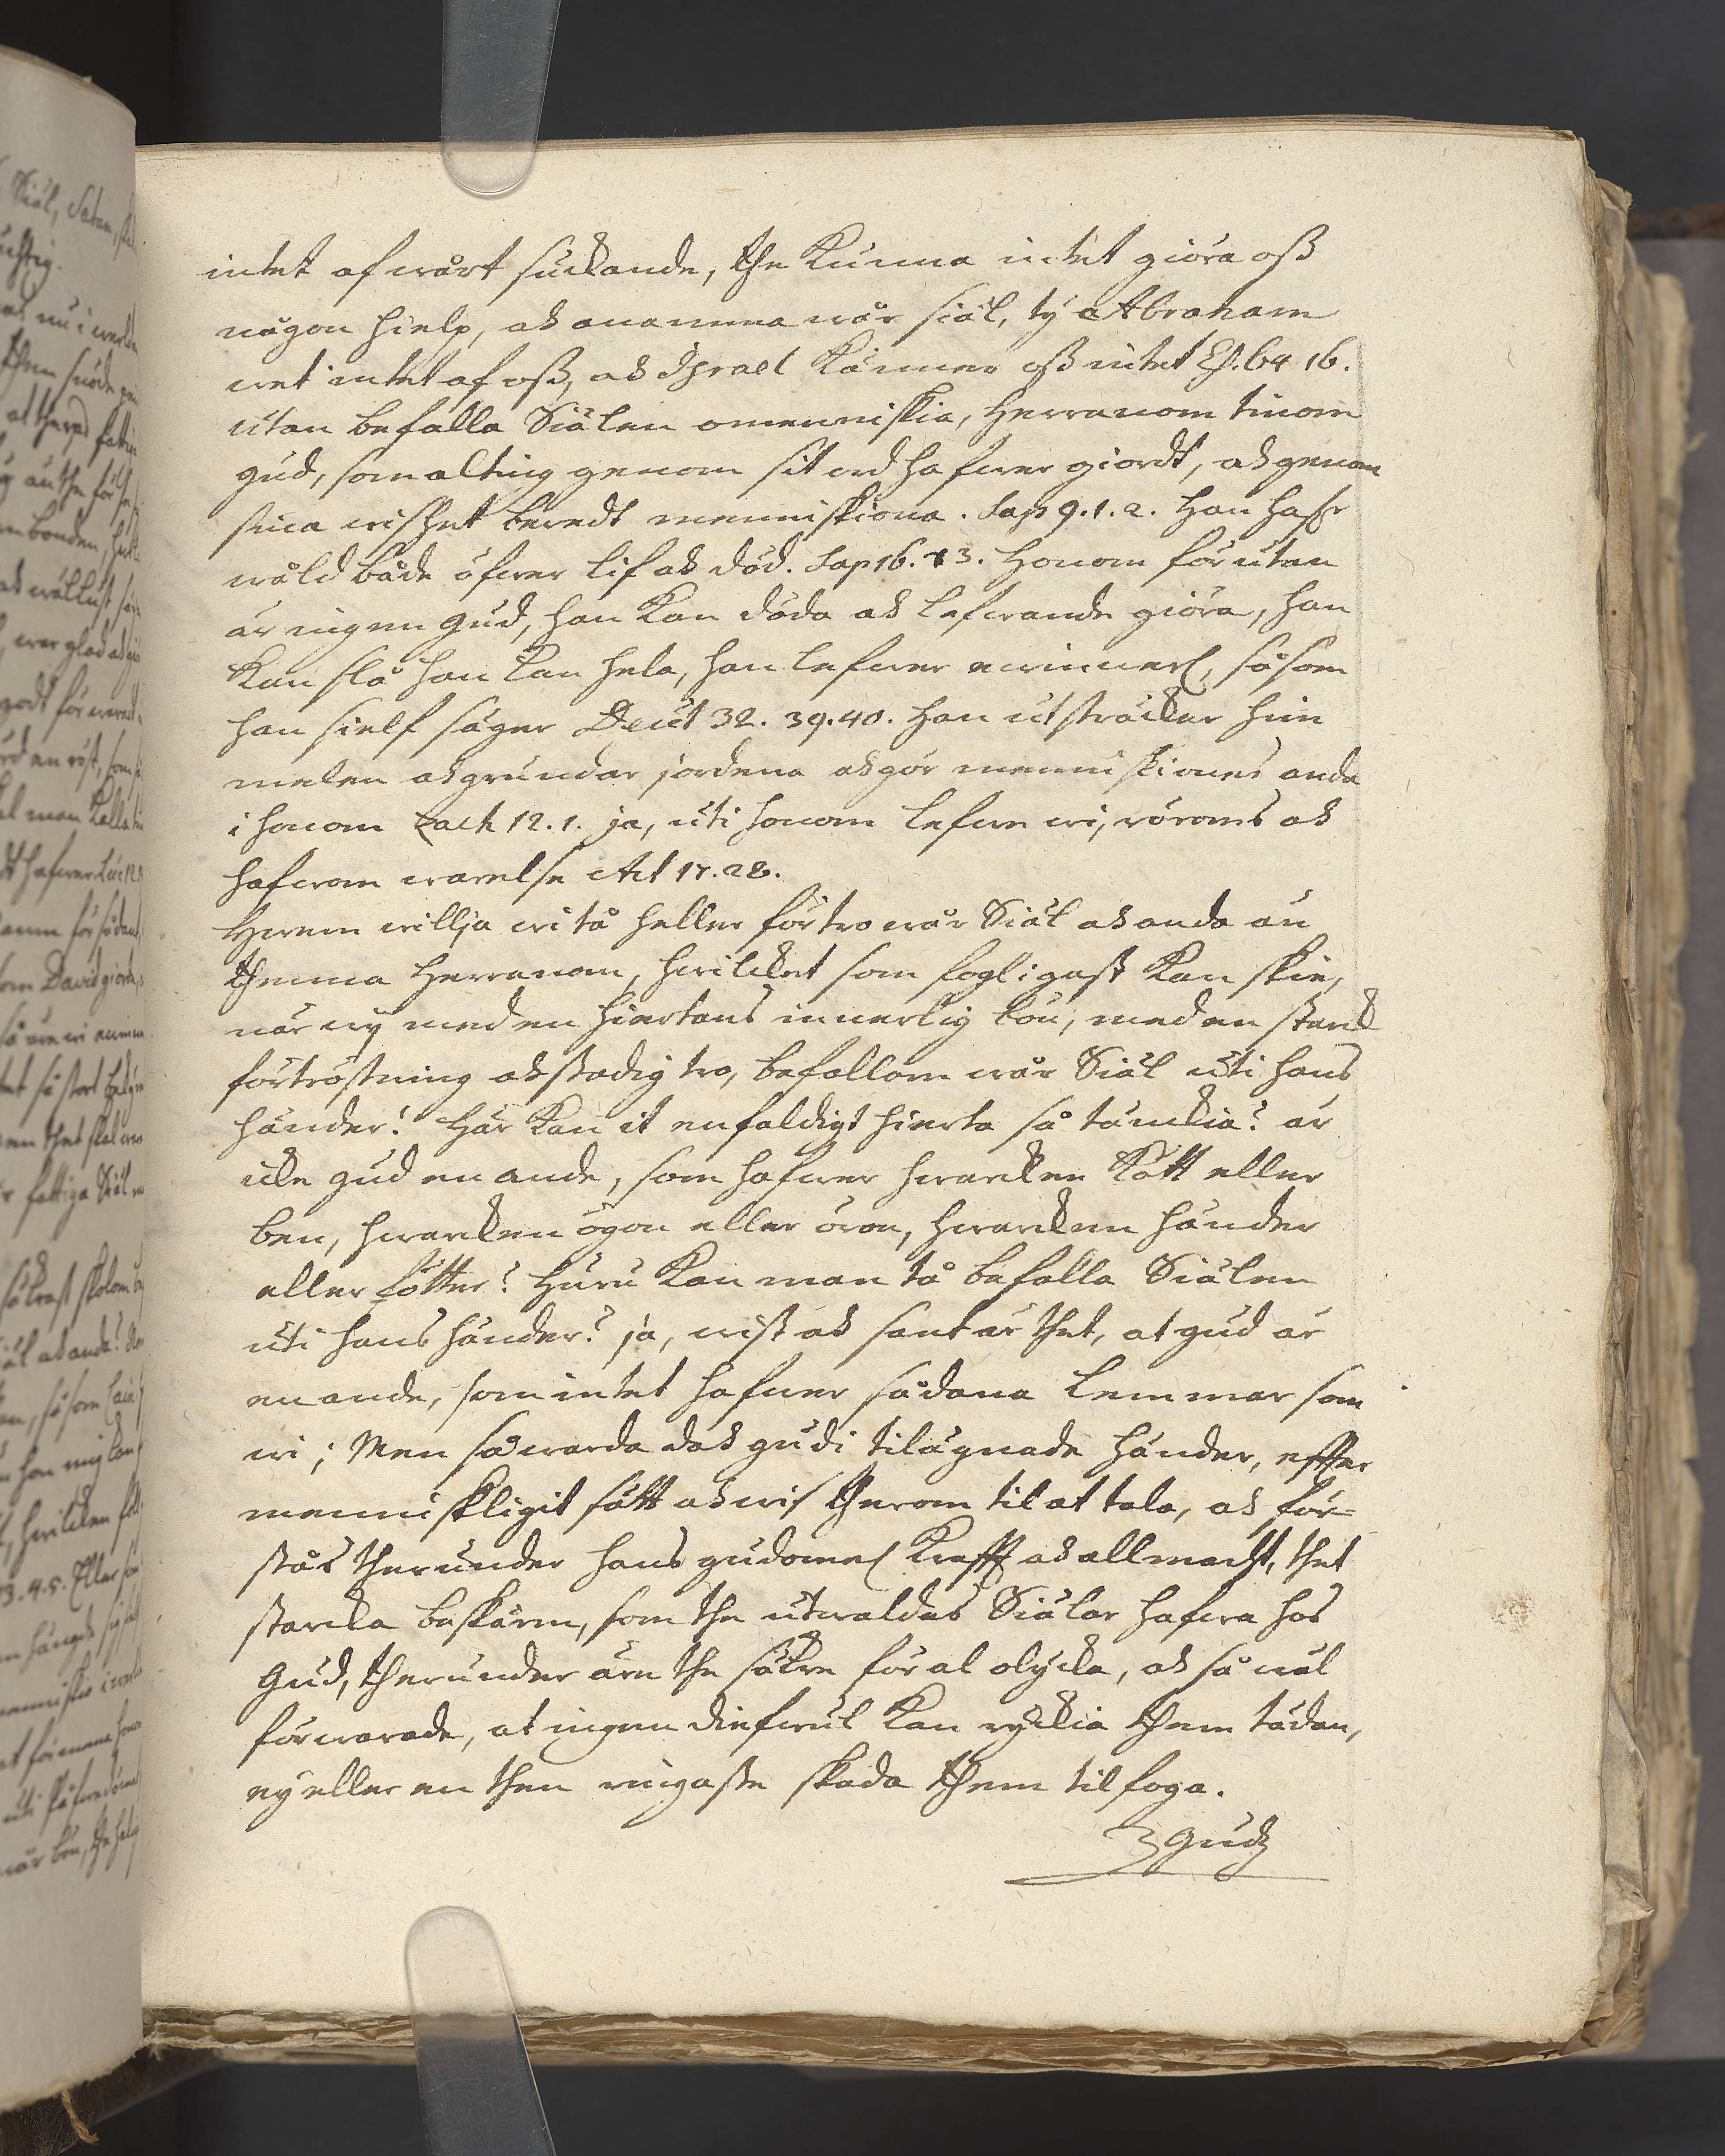 intet af wårt suckande, the Kunna intet giöra oß
någon hielp, ock anamma wår siäl, ty Abraham
wet intet af oß, ock Israel Känner oß intet Es. 64 16.
utan befalla Siälen o menniskia, Herranom tinom
gud, som alting genom sit ord hafwer giordt, ock genom
sina wishet beredt menniskiona. Sap 9. 1. 2. Han hafr
wåld både öfwer lif ock död. Sap 16. 13. Honom förutan
är ingen gud, han Kan döda ock lefwande giöra, han
Kan slå han kan hela, han lefwer ewinnerl, såsom
han sielf säger Deut 32. 39. 40. Han utsträcker him
melen ock grundar jordena ock gör menniskiones anda
i honom Zach 12. 1. ja, uti honom lefwe wi, röroms ock
hafwom warelse Act 17. 28.
Hwem willja wi tå heller förtro wår Siäl ock anda än
themma Herranom, hwilcket som fogligast Kan skie,
när wij med en hiertans innerlig bön, med en starck
förtröstning ock stadig tro, befallom wår Siäl uti hans
händer! Här Kan it enfaldigt hierta så tänckia? är
icke gud en ande, som hafwer hwarcken Kött eller
ben, hwarcken ögon eller öron, hwarcken händer
eller fötter? Huru Kan man tå befalla Siälen
uti hans händer? ja, wist ock sant är thet, at gud är
en ande, som intet hafwer sådana lemmar som
wi; Men så warda dock gudi tilägnade händer, effter
menniskligit sätt ock wis therom til at tala, ock för=
stås therunder hans gudomel Krafft ock allmacht, thet
starcka beskärm, som the utwaldas Siälar hafwa hos
Gud, therunder äre the säkre för al olycka, ock så wäl
förwarade, at ingen diefwul Kan ryckia them tädan,
ey eller en then ringaste skada them tilfoga.
Gudz